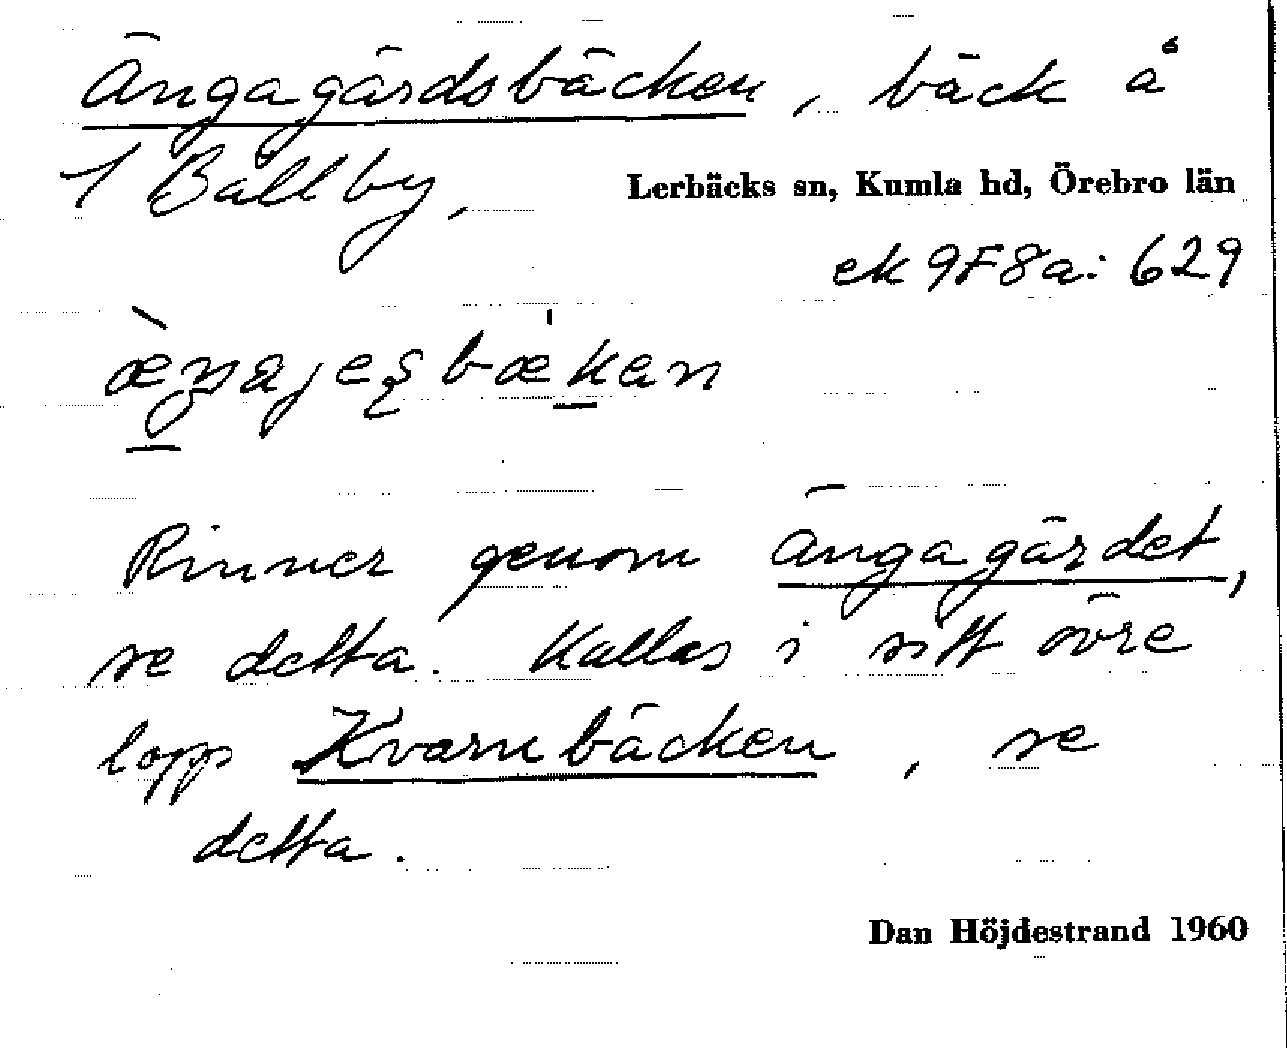 Ängagärdsbäcken, bäck å
1 Bällby,
Lerbäcks sn, Kumla hd, Örebro län
ek 9F8a: 629
Rinner genom Ängagärdet,
se detta. Kallas i sitt övre
lopp Kvarnbäcken, se
detta.
Dan Höjdestrand 1960